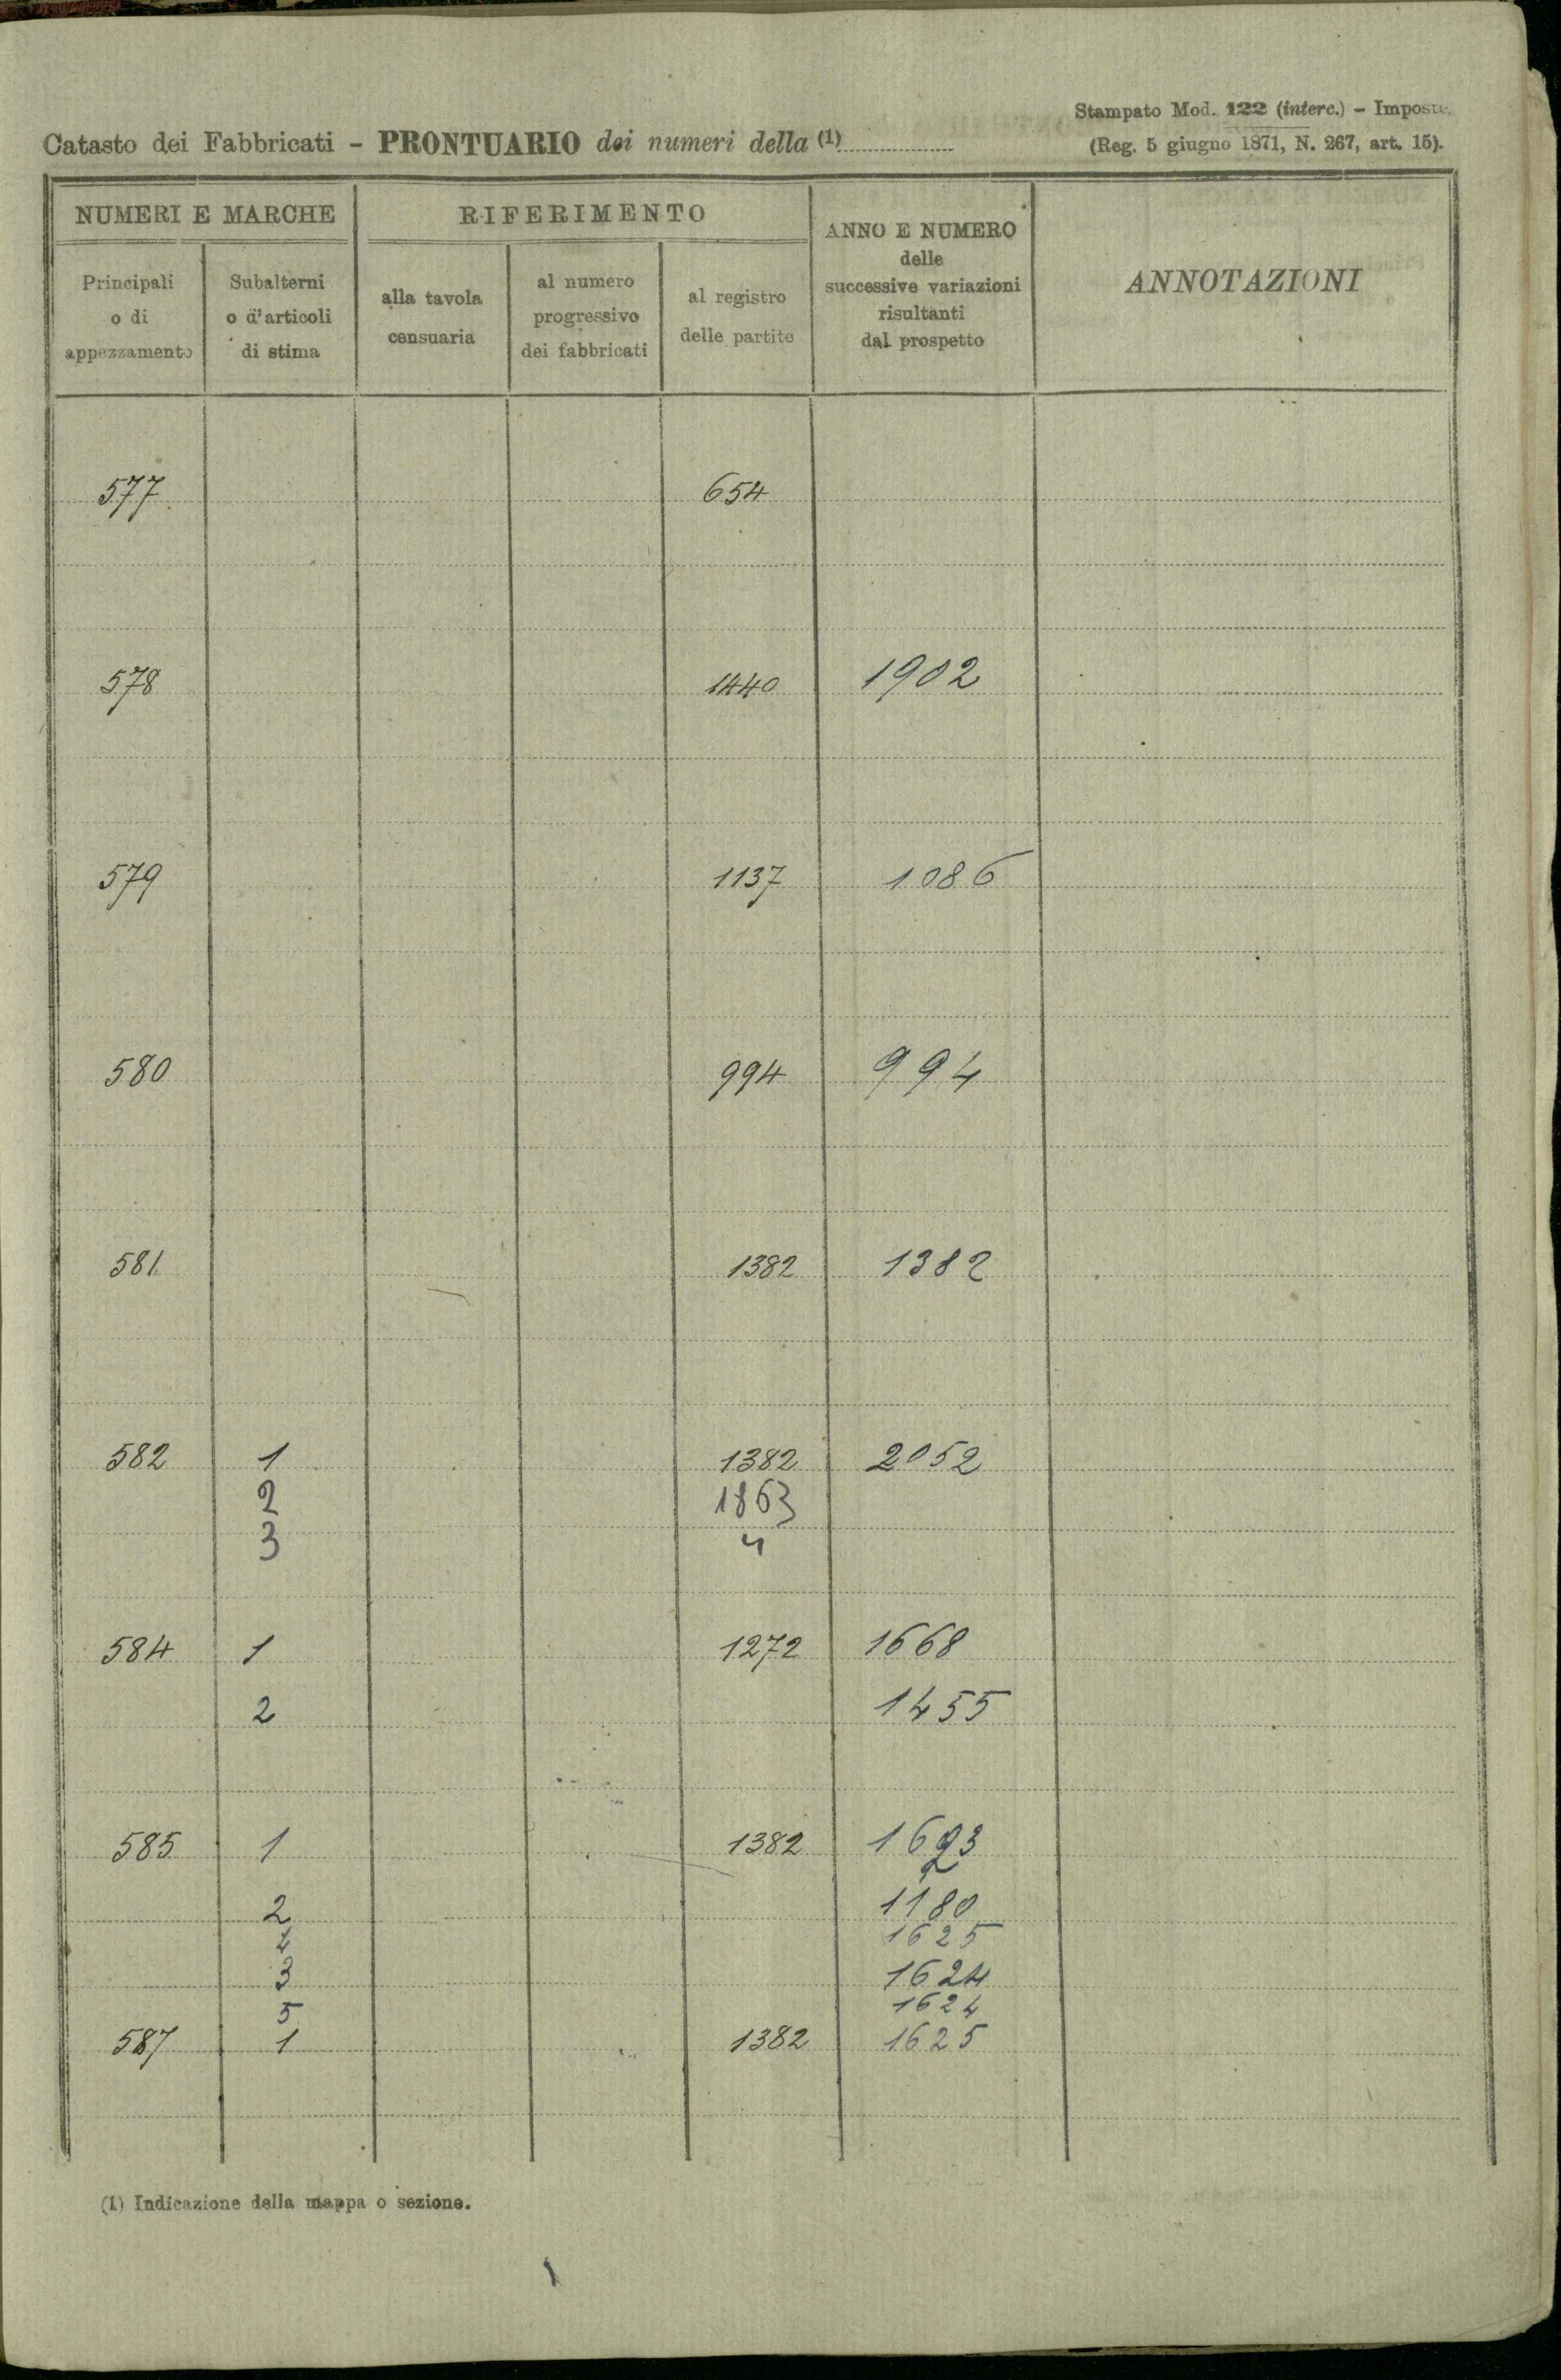 Stampato Mod. 122 (interc.) – Imposte.
Catasto dei Fabbricati – PRONTUARIO dei numeri della (1)
(Reg. 5 giugno 1871, N. 267, art. 15).
NUMERI E MARCHE
RIFERIMENTO
ANNO E NUMERO
delle
successive variazioni
risultanti
dal prospetto
ANNOTAZIONI
Principali
o di
appezzamento
Subalterni
o d'articoli
di stima
alla tavola
censuaria
al numero
progressivo
dei fabbricati
al registro
delle partite
577 654
578 1440 1902
579 1137 1086
580 994 994
581 1382 1382
582 1 1382 2052
2 1863
3 "
584 1 1272 1668
2 1455
585 1 1382 1693
2
2 1180
4 1625
3 1624
5 1624
587 1 1382 1625
(1) Indicazione della mappa o sezione.